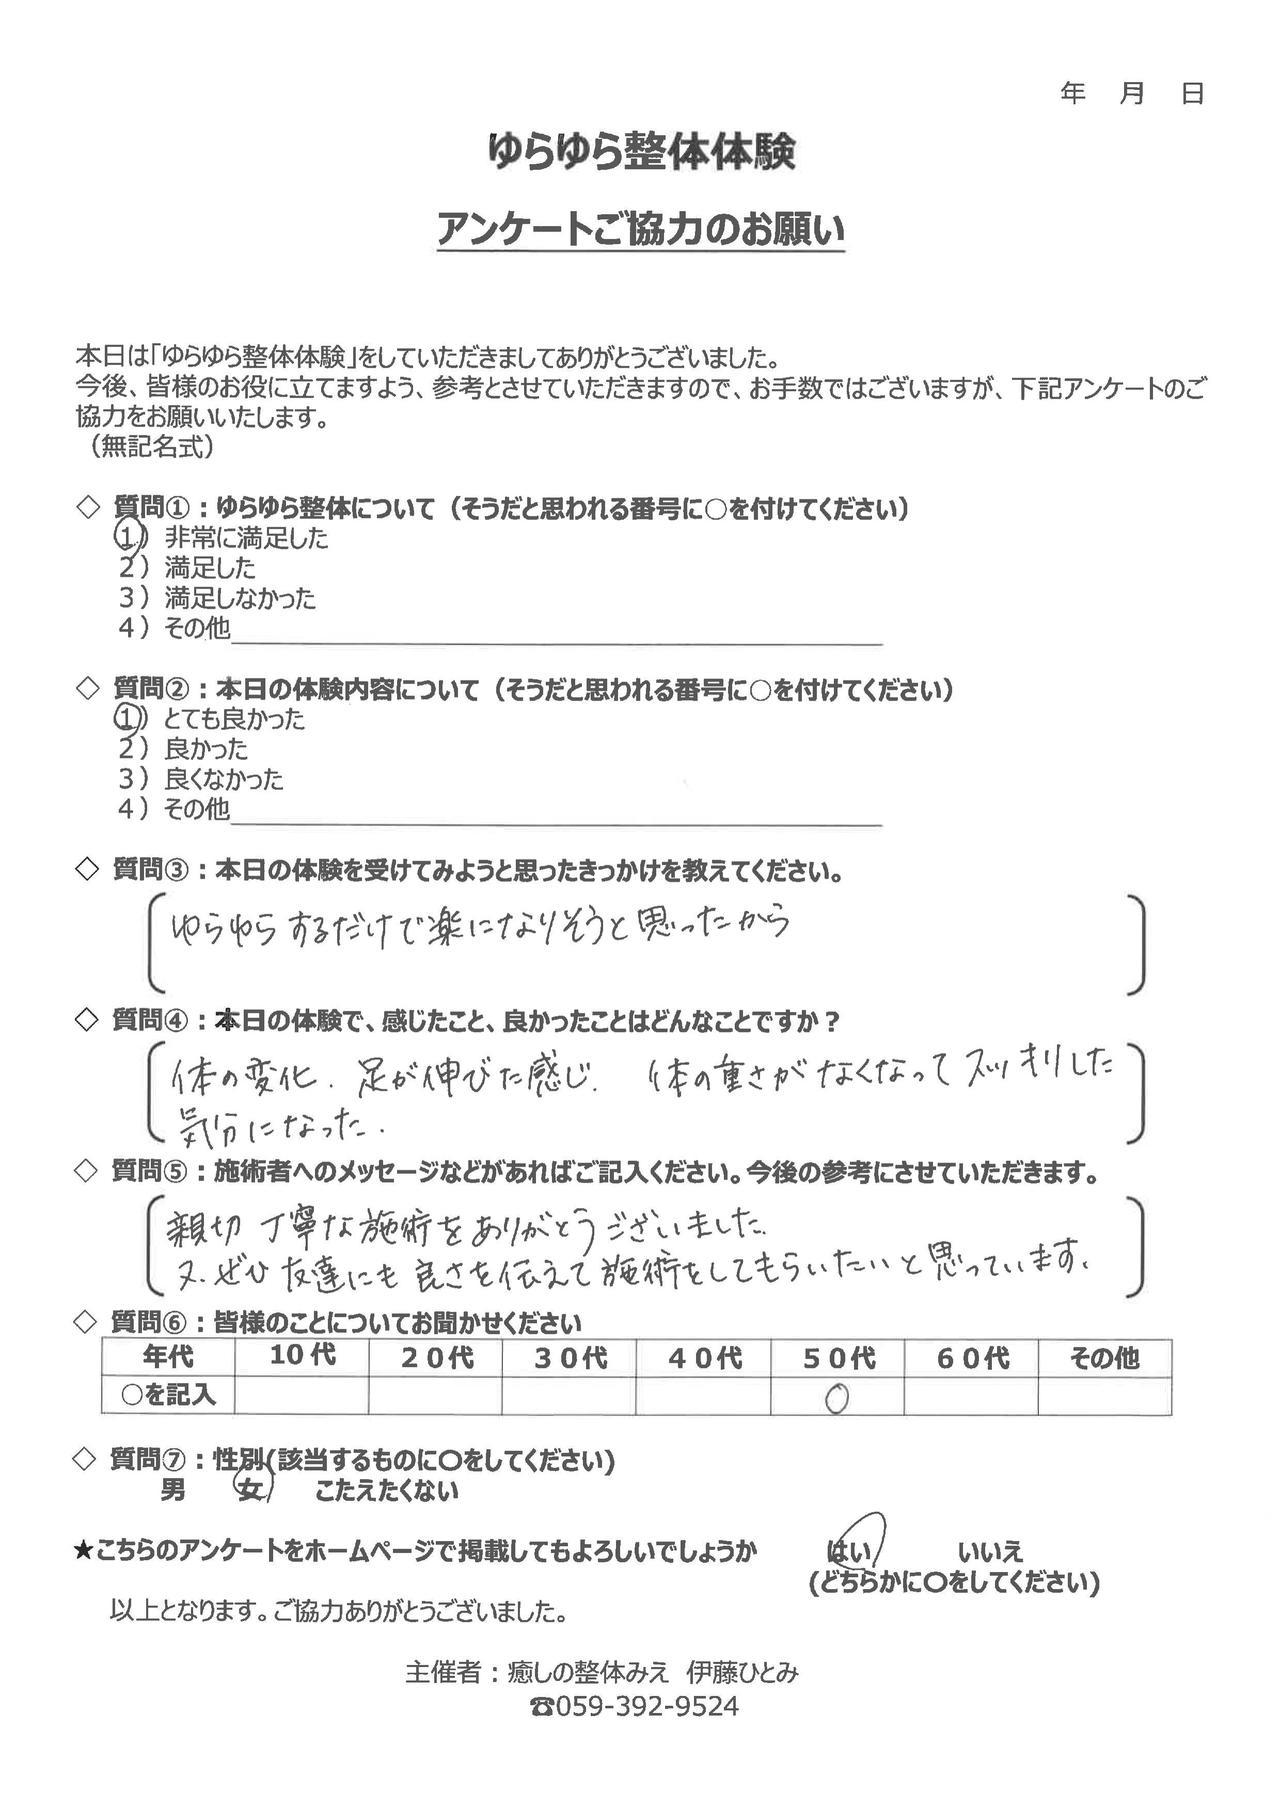 年 月 日
ゆらゆら整体体験
アンケートご協力のお願い
本日は「ゆらゆら整体体験」をしていただきましてありがとうございました。
今後、皆様のお役に立てますよう、参考とさせていただきますので、お手数ではございますが、下記アンケートのご
協力をお願いいたします。
（無記名式）
◇ 質問①：ゆらゆら整体について（そうだと思われる番号に○を付けてください）
1）非常に満足した
2）満足した
3）満足しなかった
4）その他
◇ 質問②：本日の体験内容について（そうだと思われる番号に○を付けてください）
1）とても良かった
2）良かった
3）良くなかった
4）その他
◇ 質問③：本日の体験を受けてみようと思ったきっかけを教えてください。
ゆらゆらするだけで楽になりそうと思ったから
◇ 質問④：本日の体験で、感じたこと、良かったことはどんなことですか？
体の変化. 足が伸びた感じ. 体の重さがなくなってスッキリした
気分になった.
◇ 質問⑤：施術者へのメッセージなどがあればご記入ください。今後の参考にさせていただきます。
親切 丁寧な施術をありがとうございました.
又. ぜひ 友達にも 良さを伝えて施術をしてもらいたいと思っています.
◇ 質問⑥：皆様のことについてお聞かせください
年代 10代 20代 30代 40代 50代 60代 その他
○を記入 ○
◇ 質問⑦：性別(該当するものに○をしてください)
男 女 こたえたくない
★こちらのアンケートをホームページで掲載してもよろしいでしょうか はい いいえ
(どちらかに○をしてください)
以上となります。ご協力ありがとうございました。
主催者：癒しの整体みえ 伊藤ひとみ
☎059-392-9524